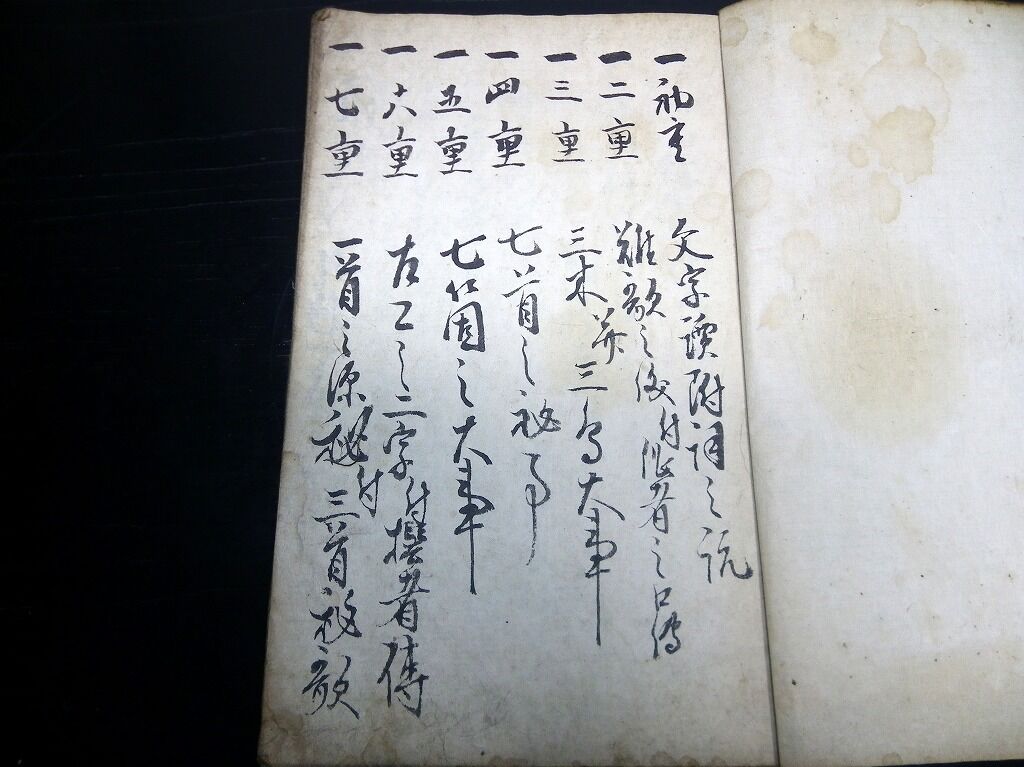 一初重 文字讀附詞之説
一二重 難歌之儀付作者之口傳
一三重 三木并三鳥大事
一四重 七首之秘事
一五重 七ヶ箇之大事
一六重 古今之二字付撰者傳
一七重 一首之深秘付三首秘歌